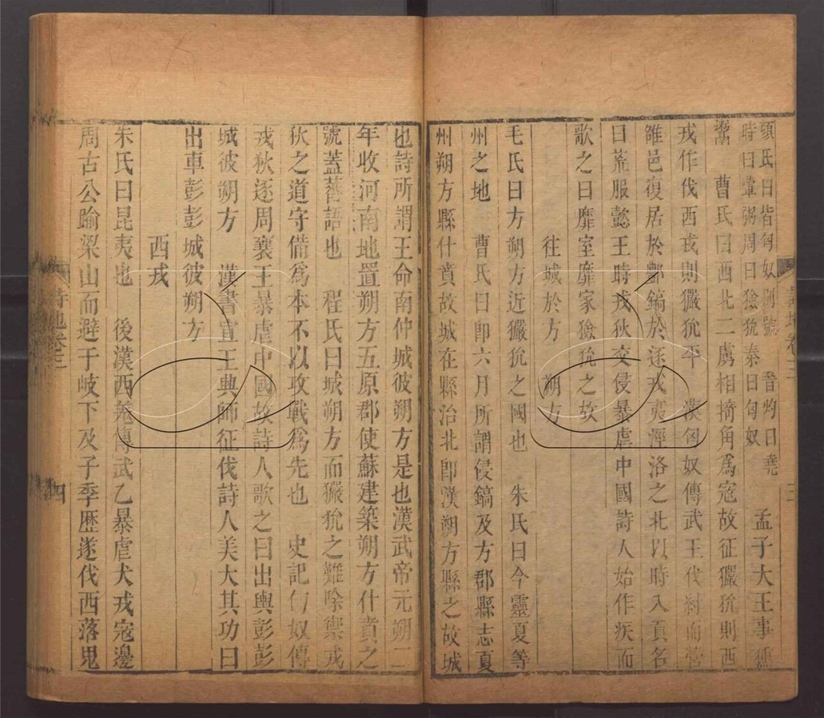 顏氏曰皆匈奴別號 晉灼曰堯
時曰葷粥周曰獫狁秦曰匈奴
孟子大王事獯
鬻 曹氏曰西北二虜相掎角為寇故征玁狁則西
戎作伐西戎則玁狁平 漢匈奴傳武王伐紂而營
雒邑復居於酆鎬於逐戎夷涇洛之北以時入貢名
曰荒服懿王時戎狄交侵暴虐中國詩人始作疾而
歌之曰靡室靡家獫狁之故
往城於方 朔方
毛氏曰方朔方近玁狁之國也 朱氏曰今靈夏等
州之地 曹氏曰即六月所謂侵鎬及方郡縣志夏
州朔方縣什賁故城在縣治北即漢朔方縣之故城
詩地卷三
三
也詩所謂王命南仲城彼朔方是也漢武帝元朔二
年收河南地置朔方五原郡使蘇建築朔方什賁之
號蓋蕃語也 程氏曰城朔方而玁狁之難除禦戎
狄之道守備為本不以攻戰為先也 史記匈奴傳
戎狄逐周襄王暴虐中國故詩人歌之曰出輿彭彭
城彼朔方 漢書宣王興師征伐詩人美大其功曰
出車彭彭城彼朔方
西戎
朱氏曰昆夷也 後漢西羗傳武乙暴虐犬戎寇邊
周古公踰梁山而避于岐下及子季歷遂伐西落鬼
詩地卷三
四